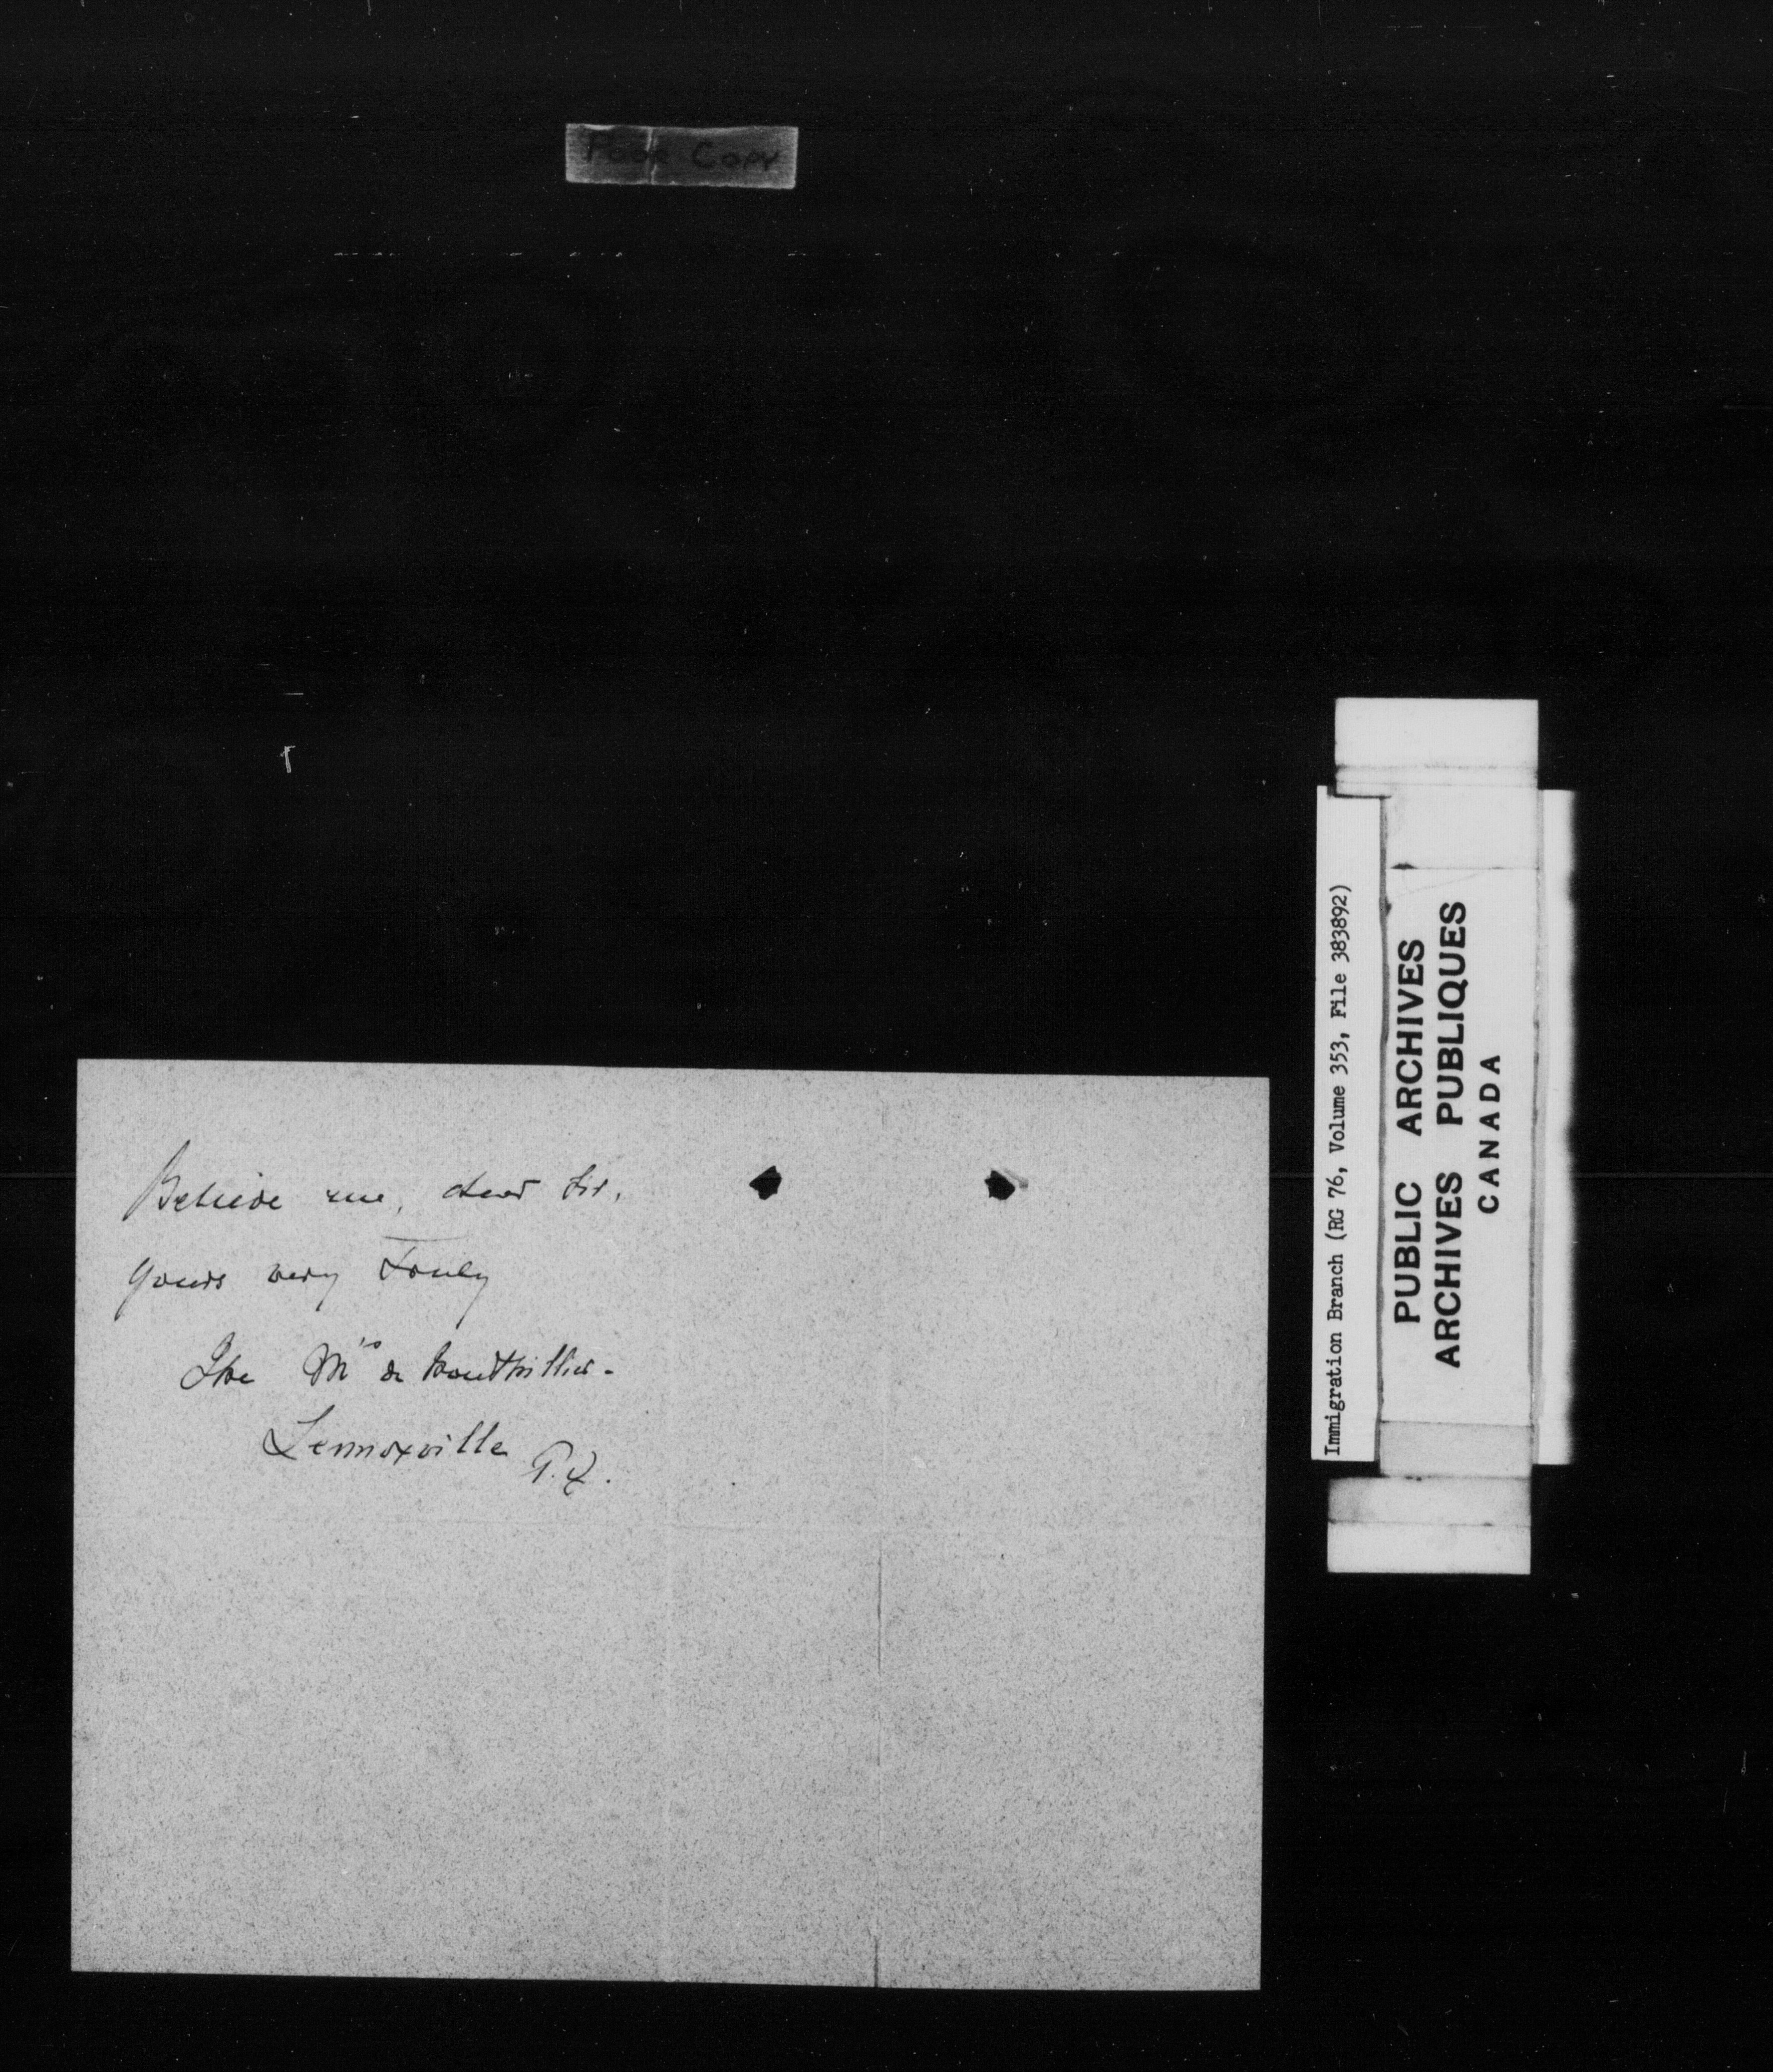 Poor Copy
Believe me, dear Sir,
Yours very Truly
The Mis de
Lennoxville P.Q.
Immigration Branch (RG 76, Volume 353, File 383892)
PUBLIC ARCHIVES
ARCHIVES PUBLIQUES
CANADA